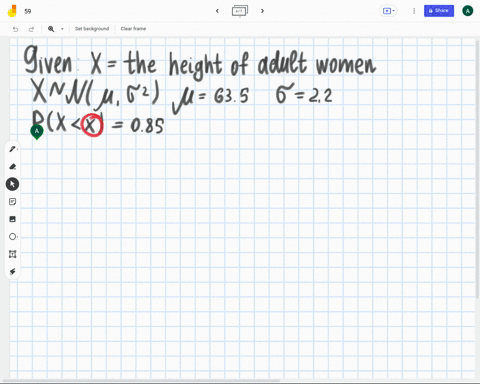 59
4/7
Share
A
Set background
Clear frame
Given: X = the height of adult women
X ~ N(μ, σ²) μ = 63.5 σ = 2.2
P(X < x) = 0.85
A